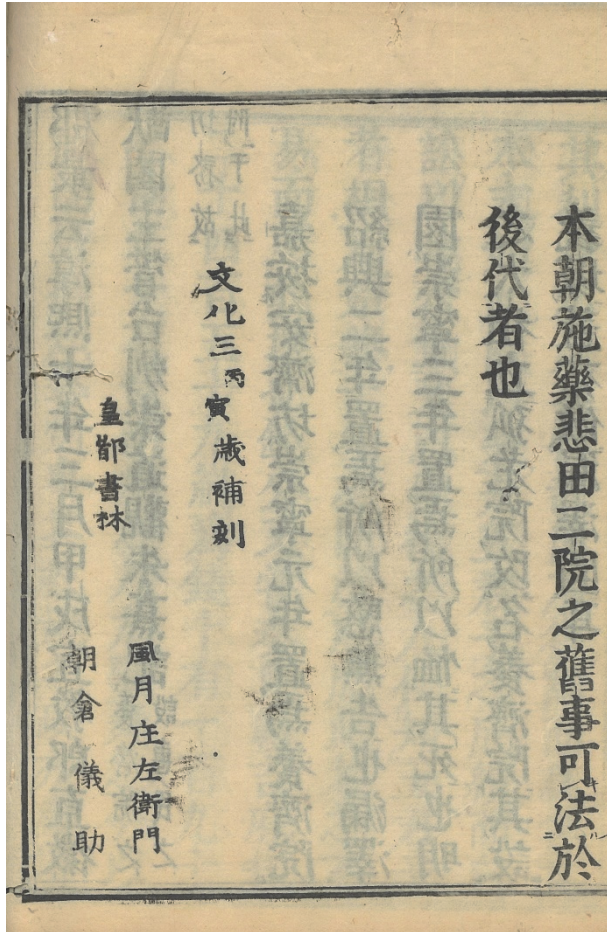 本朝施藥悲田二院之舊事可法於
後代者也
文化三丙寅歲補刻
皇都書林
風月庄左衛門
朝倉儀助